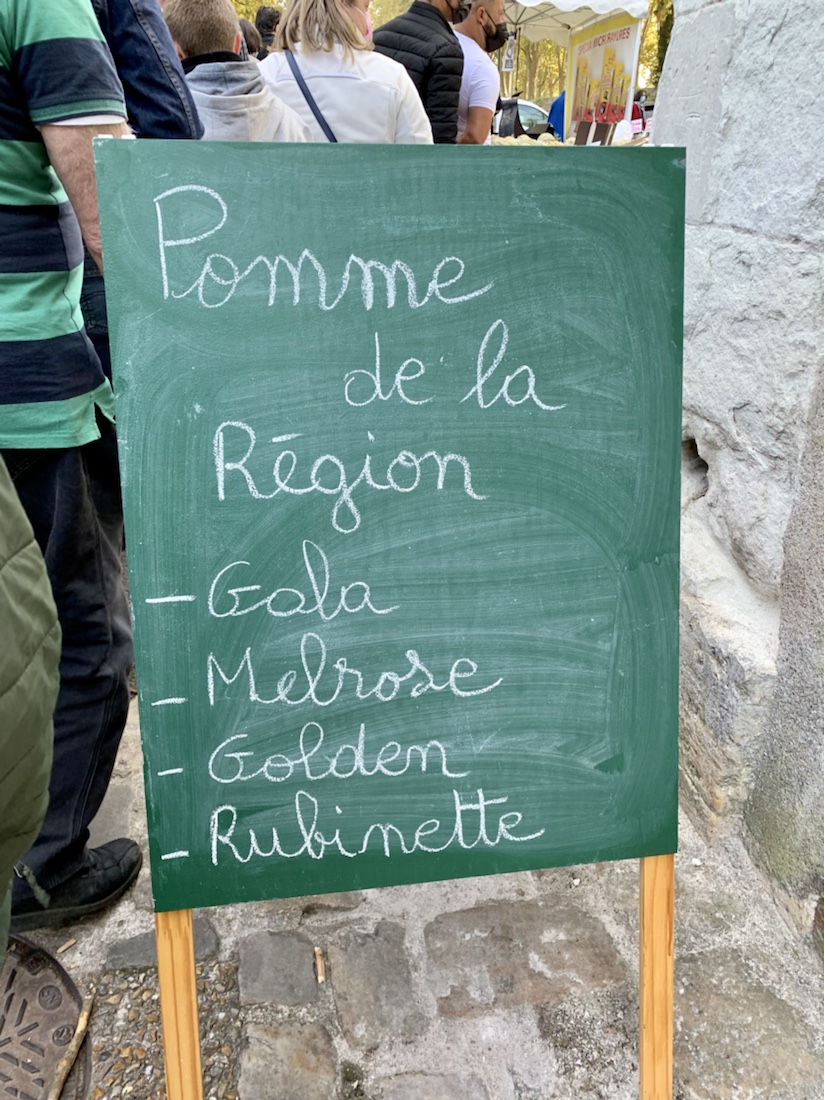 Pomme
de la
Région
- Gala
- Melrose
- Golden
- Rubinette